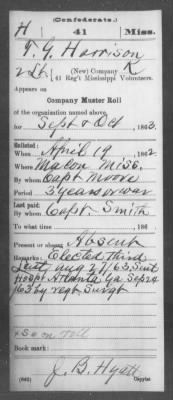 (Confederate.)
H 41 Miss.
T. G. Harrison
2 Lt, (New) Company K
41 Reg't Mississippi Volunteers.
Appears on
Company Muster Roll
of the organization named above,
for Sept & Oct, 1863.
Enlisted:
When April 19, 1862.
Where Macon Miss.
By whom Capt Moore
Period 3 years or war
Last paid:
By whom Capt. Smith
To what time , 186 .
Present or absent Absent
Remarks: Elected Third
Lieut, Aug 27/63, Sent
Hospt Atlanta Ga Sept 4
/63 by regt Surgt
*So on roll
Book mark:
J. B. Hyatt
(642) Copyist.